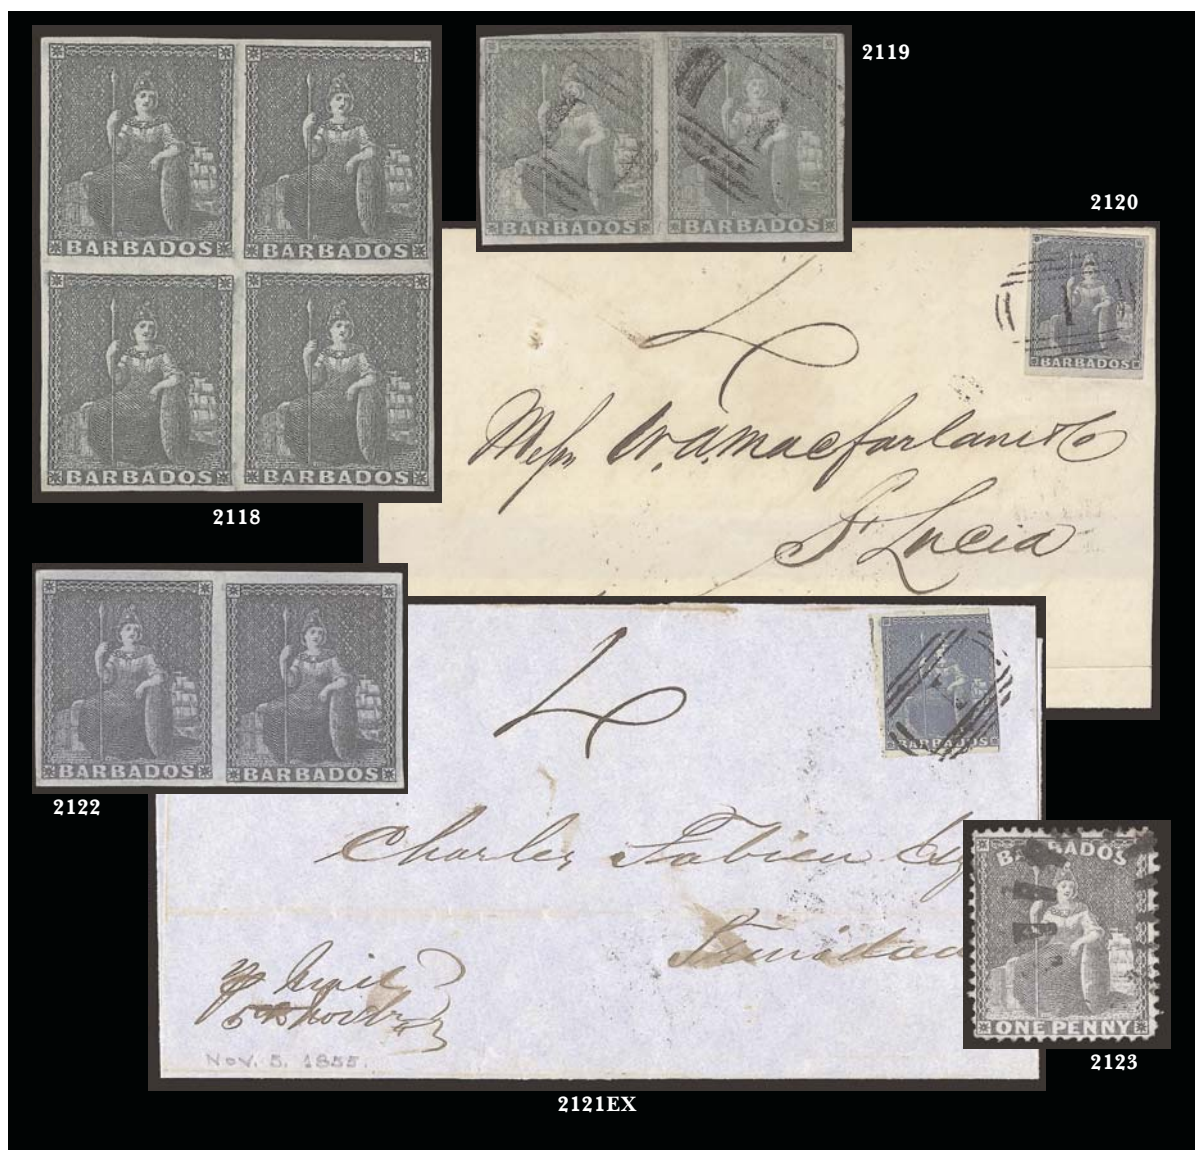 BARBADOS BARBADOS
BARBADOS BARBADOS
2118
BARBADOS BARBADOS
2119
2120
BARBADOS
4
Messrs W. A. Macfarlane & Co
St Lucia
BARBADOS BARBADOS
2122
BARBADOS
4
Charles Fabien Esq
Trinidad
Nov. 5. 1855.
2121EX
BARBADOS
ONE PENNY
2123